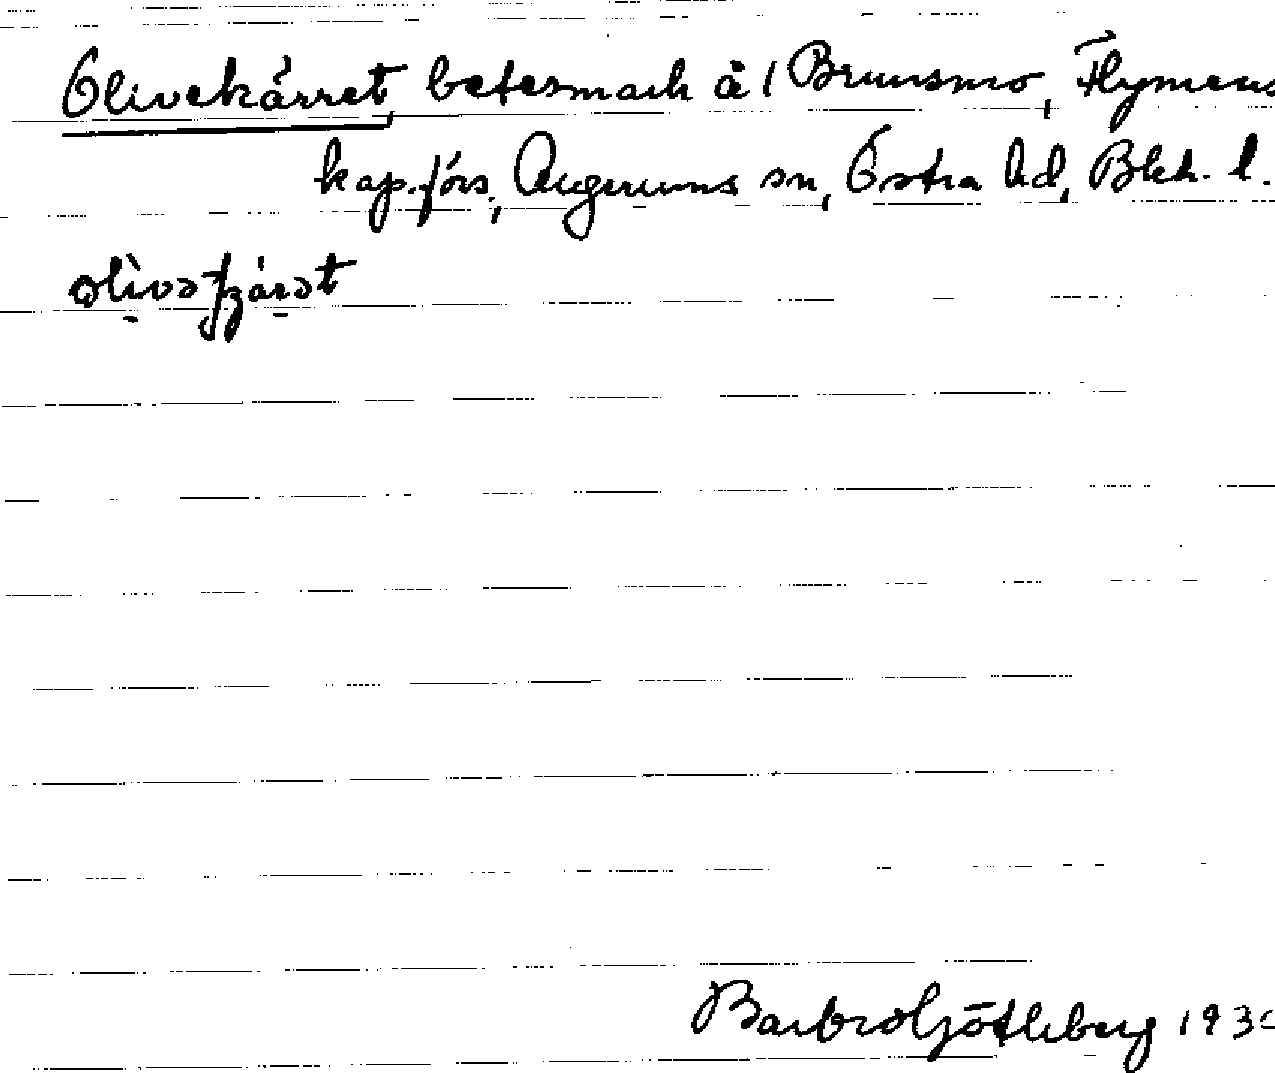 Olivekärret, betesmark å 1 Brunsmo, Flymens
kap.förs., Augerums sn, Östra hd, Blek. l.
Barbro Götleberg